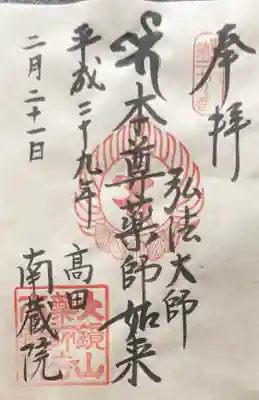 奉拝
弘法大師
本尊薬師如来
平成二十九年
高田
南蔵院
二月二十一日
大鏡山